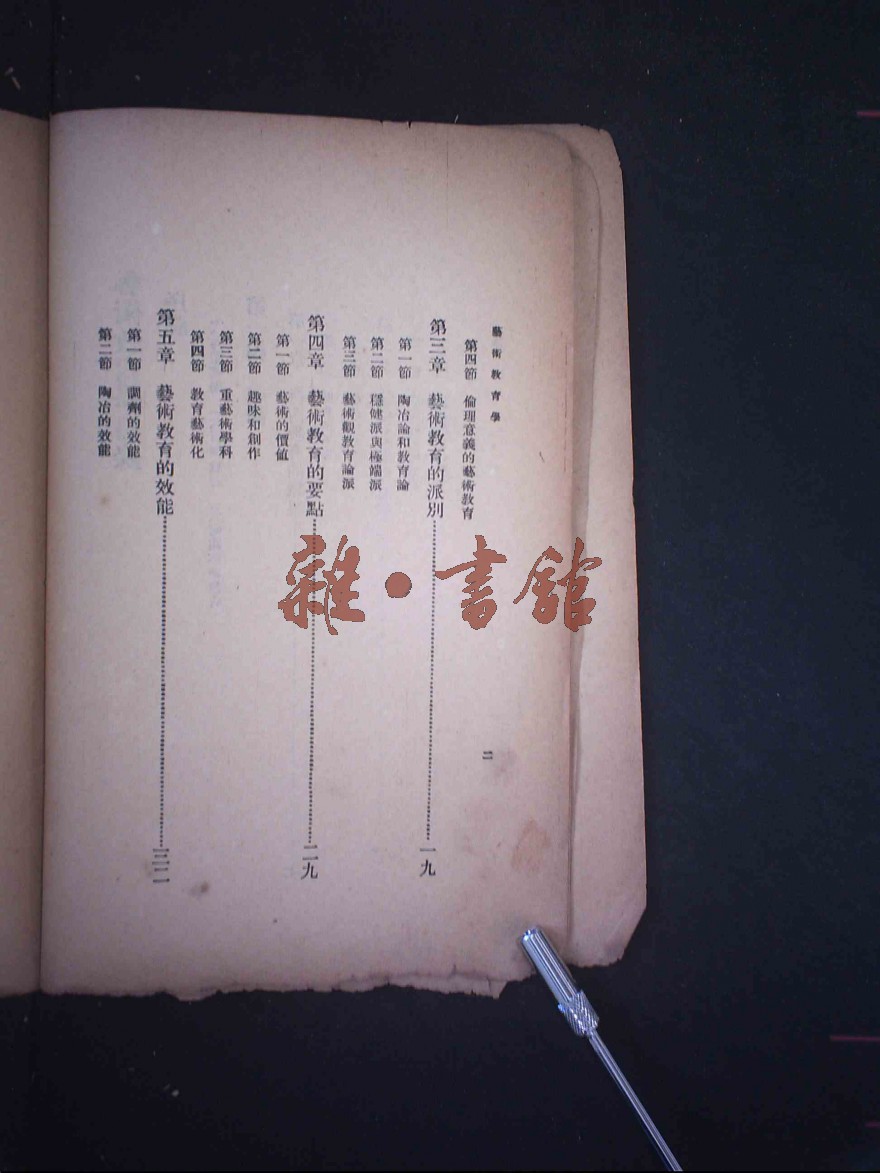 藝術教育學
二
第四節　倫理意義的藝術教育
第三章　藝術教育的派別……一九
第一節　陶冶論和教育論
第二節　穩健派與極端派
第三節　藝術觀教育論派
第四章　藝術教育的要點……二九
第一節　藝術的價值
第二節　趣味和創作
第三節　重藝術學科
第四節　教育藝術化
第五章　藝術教育的效能……三二
第一節　調劑的效能
第二節　陶冶的效能
雜·書館